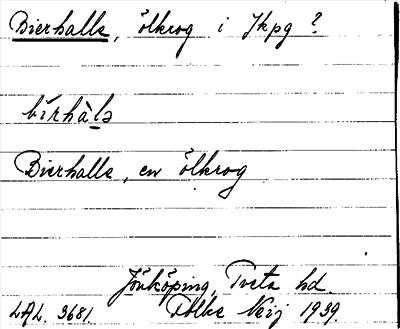 Bierhalle, ölkrog i Jkpg?
birhàlə
Bierhalle, en ölkrog
Jönköping, Tveta hd
LAL. 3681. Folke Neij 1939.